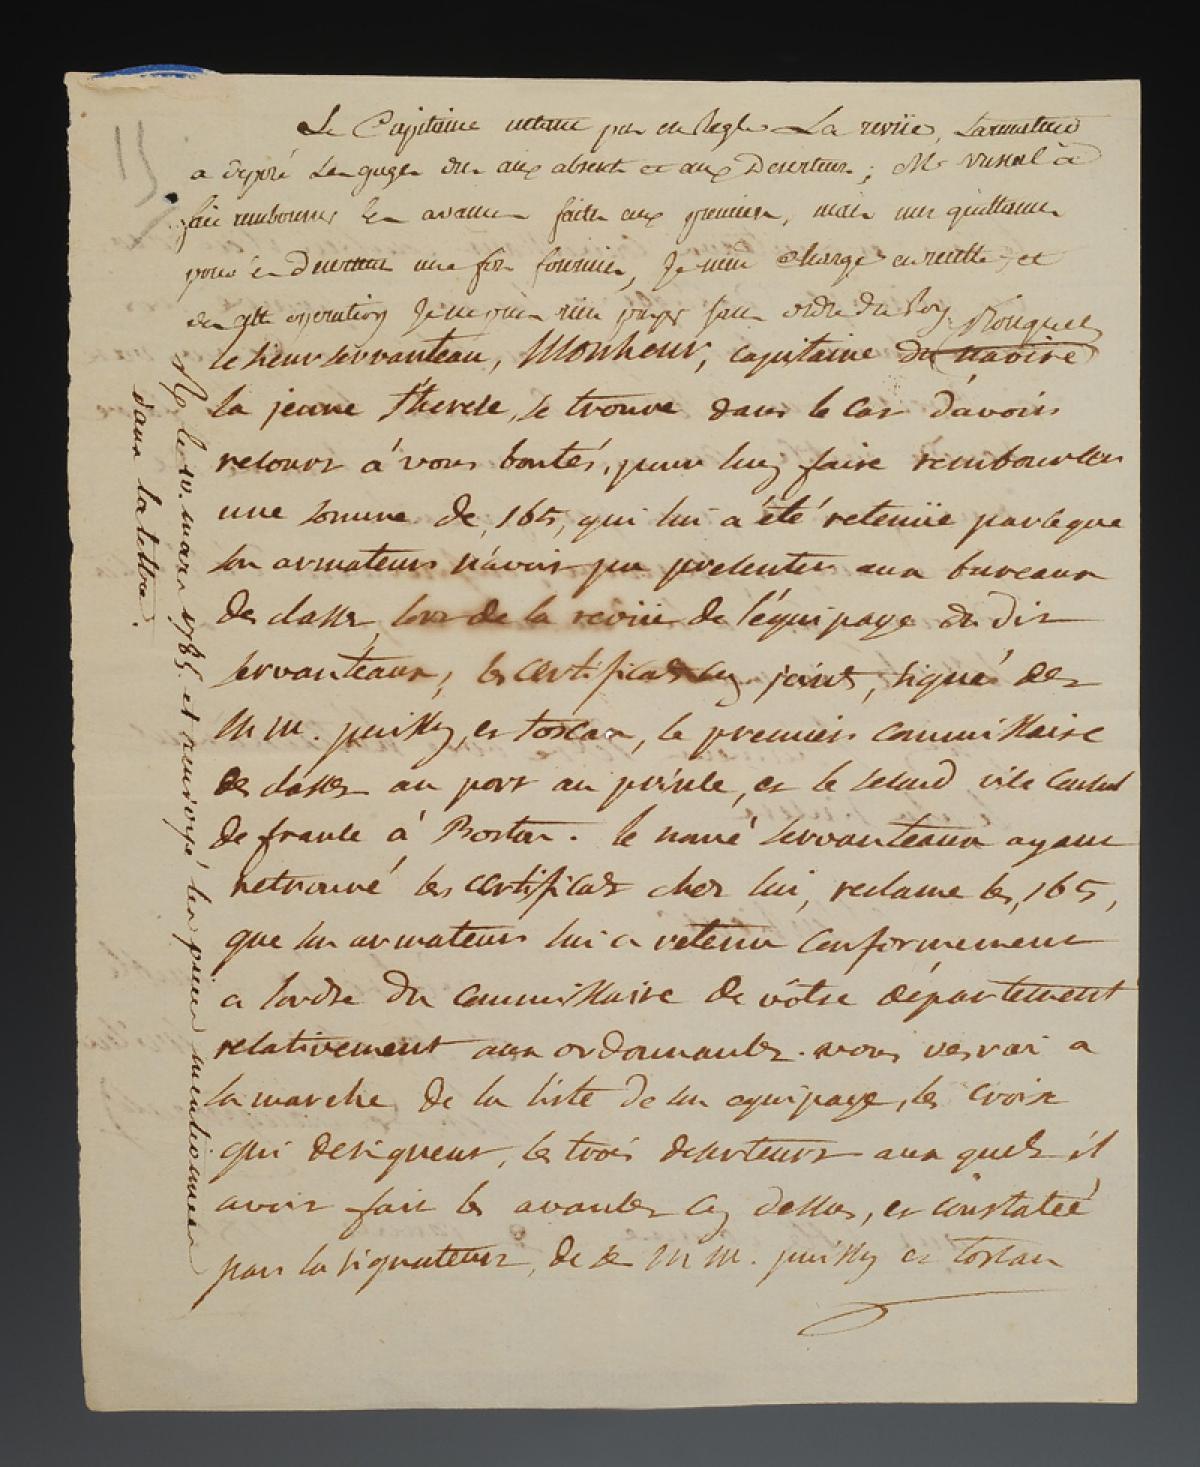 Le Capitaine netant pas en Regle a La reviie, Larmateur
a deposé Les gages dus aux absents et aux Deserteurs; Mr
fait rembourser Les avances faites aux premiers, mais mes quittances
pour les Deserteurs une fois fournies, Je men charge en recette et
de cette operation Je ne puis rien payer sans ordre du Roy
Rouquet
le sieur servanteau, Monsieur, capitaine du navire
la jeune therese, se trouve dans le cas d'avoir
recours á vous bontés, pour luy faire rembourser
une somme de, 165, qui lui a été retenüe parceque
son armateur n'avoit pu presenter aux bureaux
des classes, lors de la reviie de l'équipage du dit
servanteaux, les certificats cy joint, signé des
MM. puissy et toscan, le premier commissaire
des classes au port au prince, et le second vice Consul
de france á Boston. le nomé servanteaux ayant
retrouvé les certificats chez lui, reclame les, 165,
que son armateur lui a retenu conformement
a lordre du commissaire de vôtre département
relativement aux ordonnances. vous verrai a
la marche de la liste de son equipage, les croix
qui designent, les trois deserteurs aux quels il
avoit fait les avances cy dessus, et constateé
par la signateur, de MM. puissy et toscan
Rx le 10. mars 1785. et renvoyé les pieces mentionnées
dans la lettre.